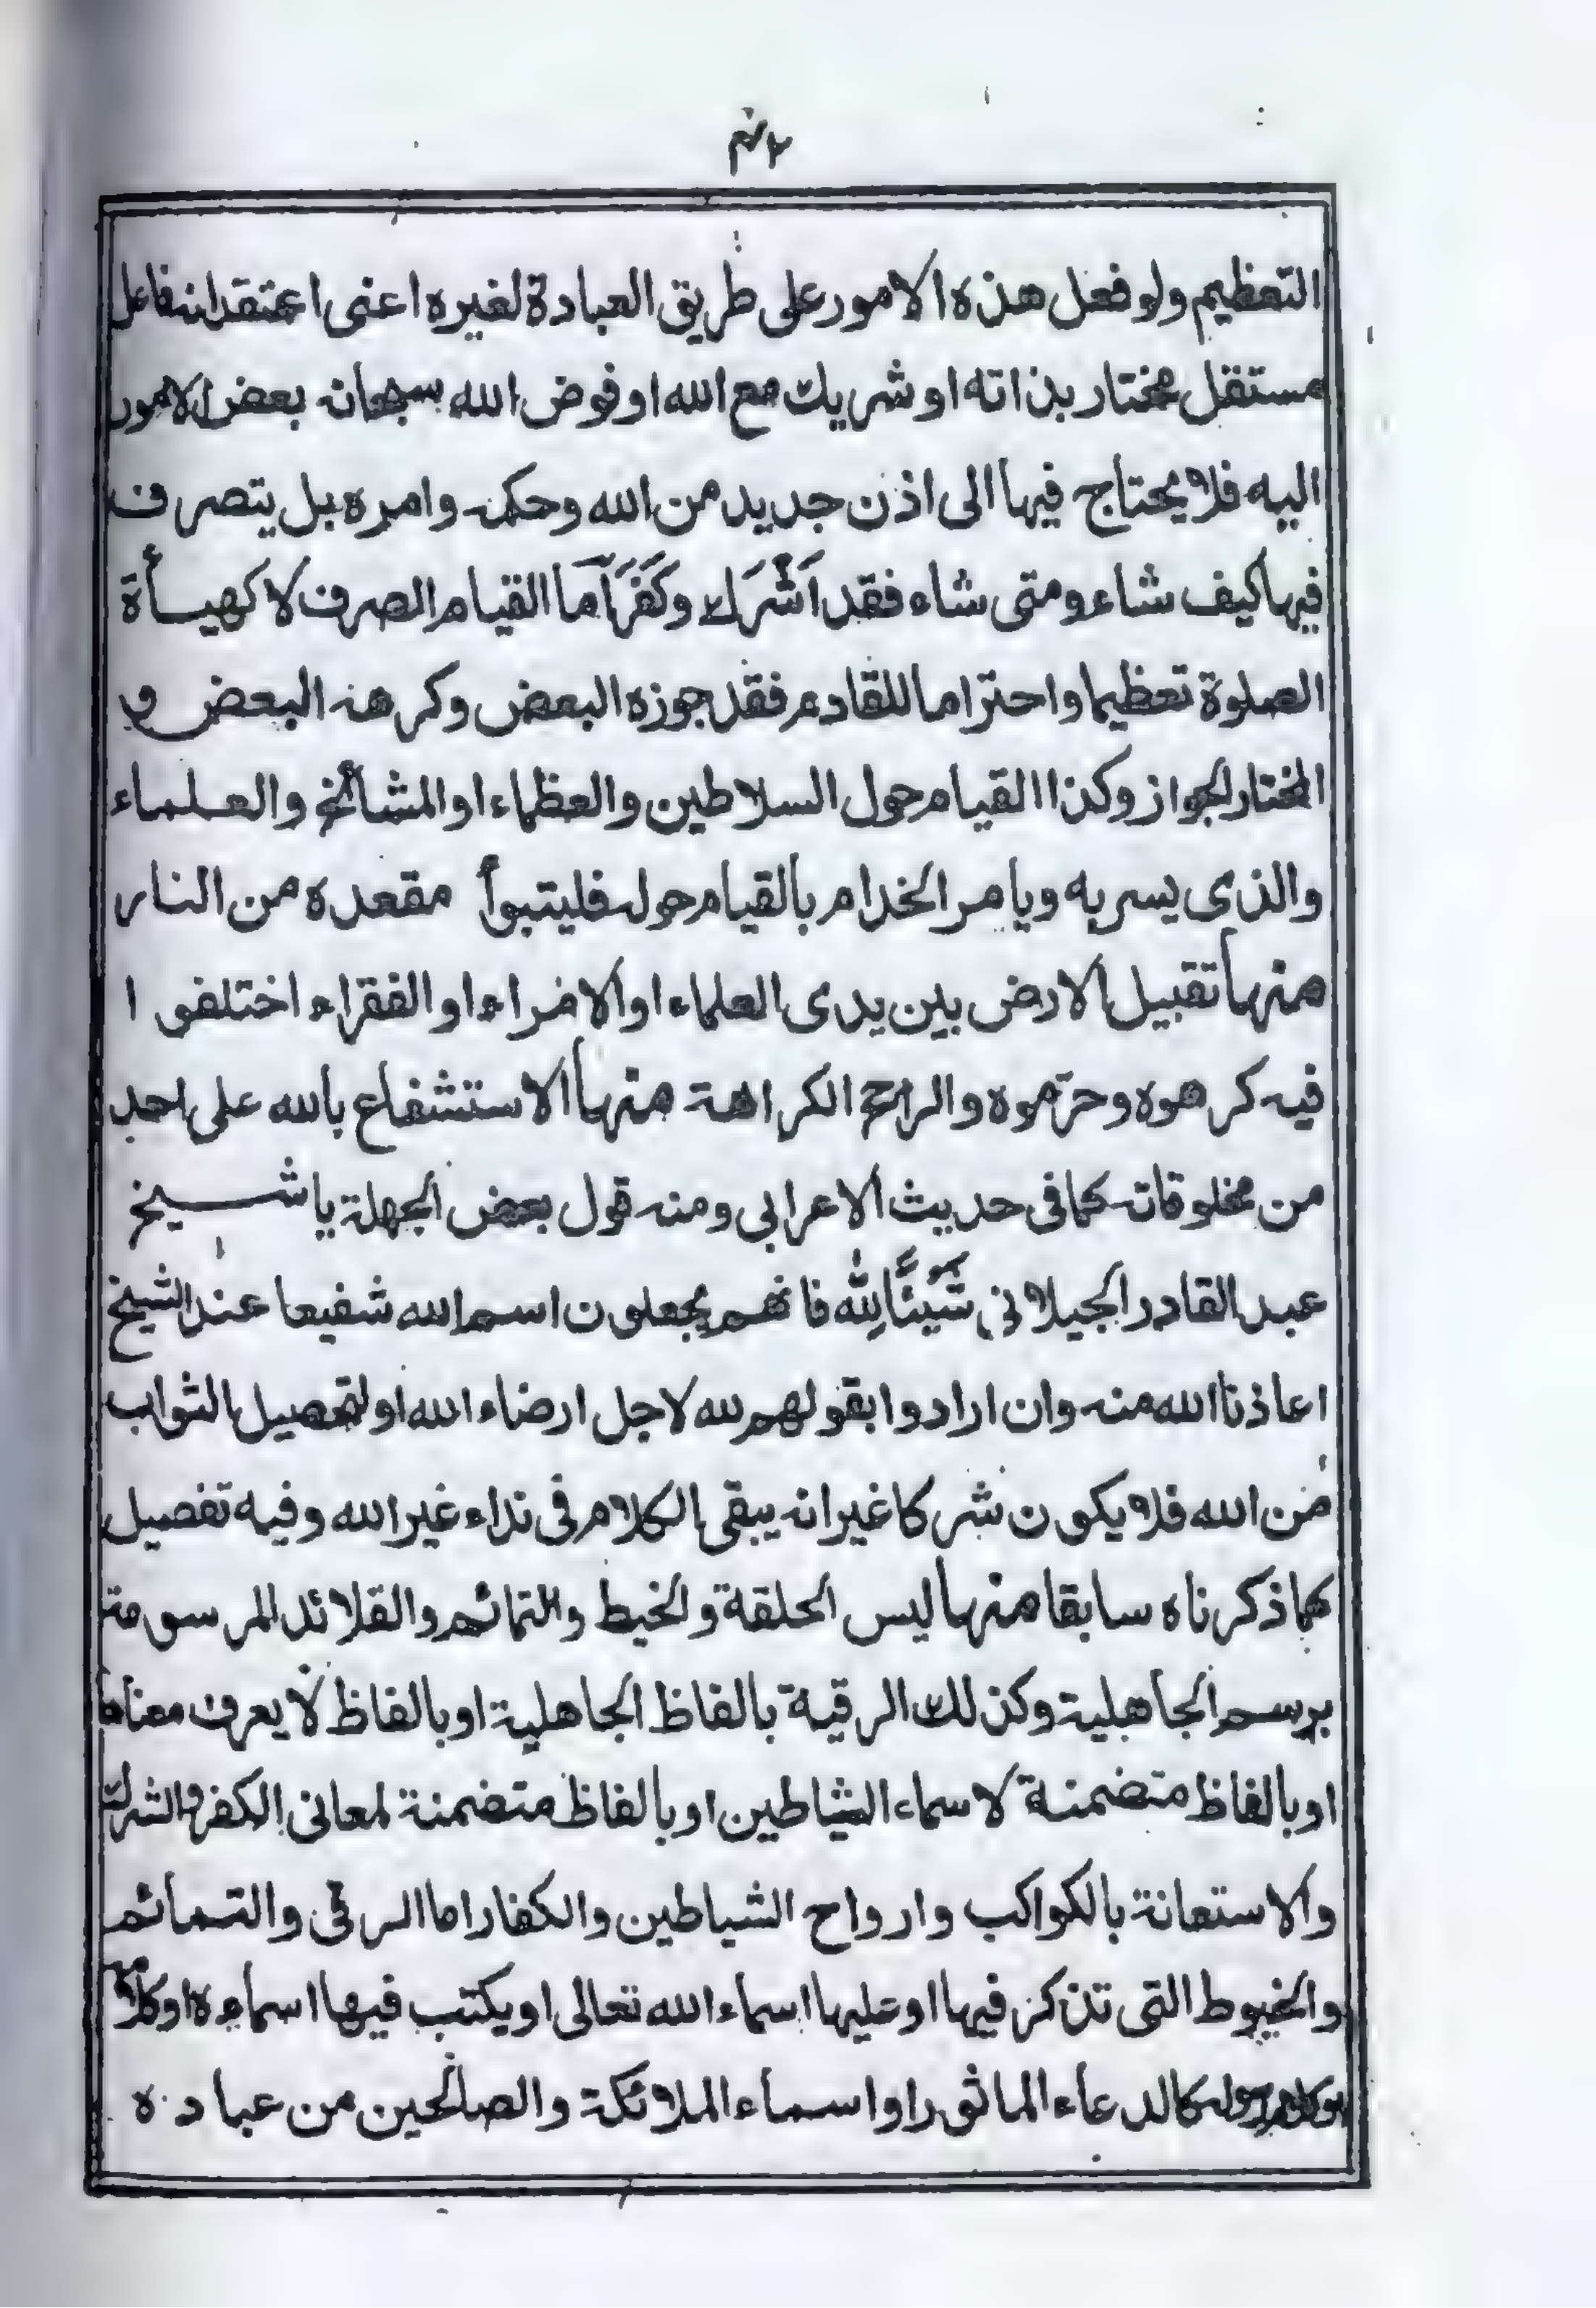 التعظیم ولو فعل هذه الامور علی طریق العبادة لغیره اعنی اعتقد انه فاعل
مستقل مختار بذاته او شریك مع الله او فوض الله سبحانه بعض الامور
الیه فلا یحتاج فیها الی اذن جدید من الله وحكمه وامره بل یتصرف
فیها كیف شاء ومتی شاء فقد اَشْرَك وكَفَرَ اَما القیام الصرف لا كهیـأة
الصلوة تعظیما واحتراما للقادم فقد جوزه البعض وكرهه البعض و
المختار الجواز وكذا القیام حول السلاطین والعظماء او المشائخ والعلماء
والذی یسر به ویامر الخدام بالقیام حوله فلیتبوأ مقعده من النار
منها تقبیل الارض بین یدی العلماء او الامراء او الفقراء اختلفوا
فیه كرهوه وحرّموه والراجح الكراهة منها الاستشفاع بالله علی احد
من مخلوقاته كما فی حدیث الاعرابی ومنه قول بعض الجهلة یا شیخ
عبد القادر الجیلانی شَیْئًا لِلّٰه فانهم یجعلون اسم الله شفیعا عند الشیخ
اعاذنا الله منه وان ارادوا بقولهم لله لاجل ارضاء الله او لتحصیل الثواب
من الله فلا یكون شركا غیر انه یبقی الكلام فی نداء غیر الله وفیه تفصیل
كما ذكرناه سابقا منها لیس الحلقة والخیط والتمائم والقلائد المرسومة
برسم الجاهلیة وكذلك الرقیة بالفاظ الجاهلیة او بالفاظ لا یعرف معناها
او بالفاظ متضمنة لاسماء الشیاطین او بالفاظ متضمنة لمعانی الكفر والشرك
والاستعانة بالكواكب وارواح الشیاطین والكفار اما الرقی والتمائم
والخیوط التی تذكر فیها او علیها اسماء الله تعالی او یكتب فیها اسماءه او كلامه
رسوله كالدعاء الماثور او اسماء الملائكة والصالحین من عباده